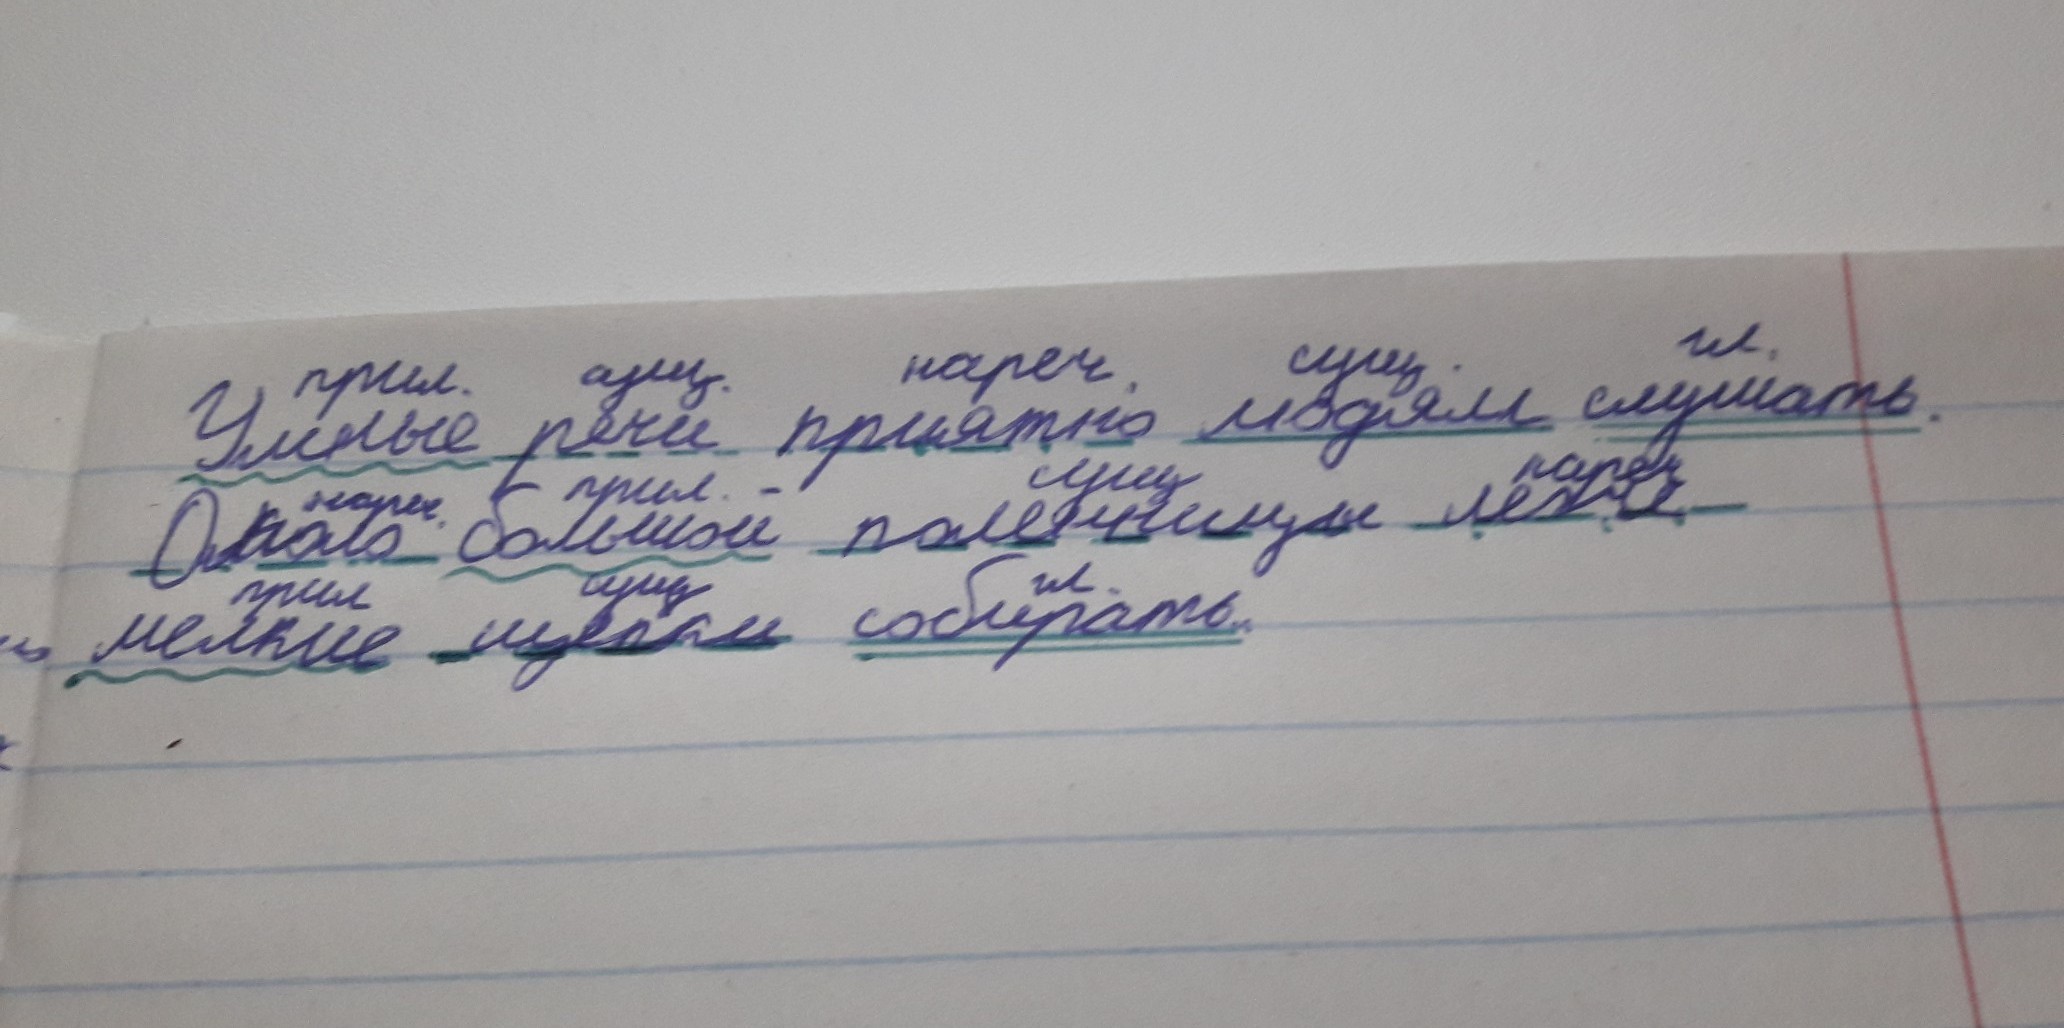 прил. сущ. нареч. сущ. гл.
Умные речи приятно людям слушать.
нареч. прил. - сущ нареч
Около большой поленницы легче
прил сущ гл.
мелкие щепки собирать..